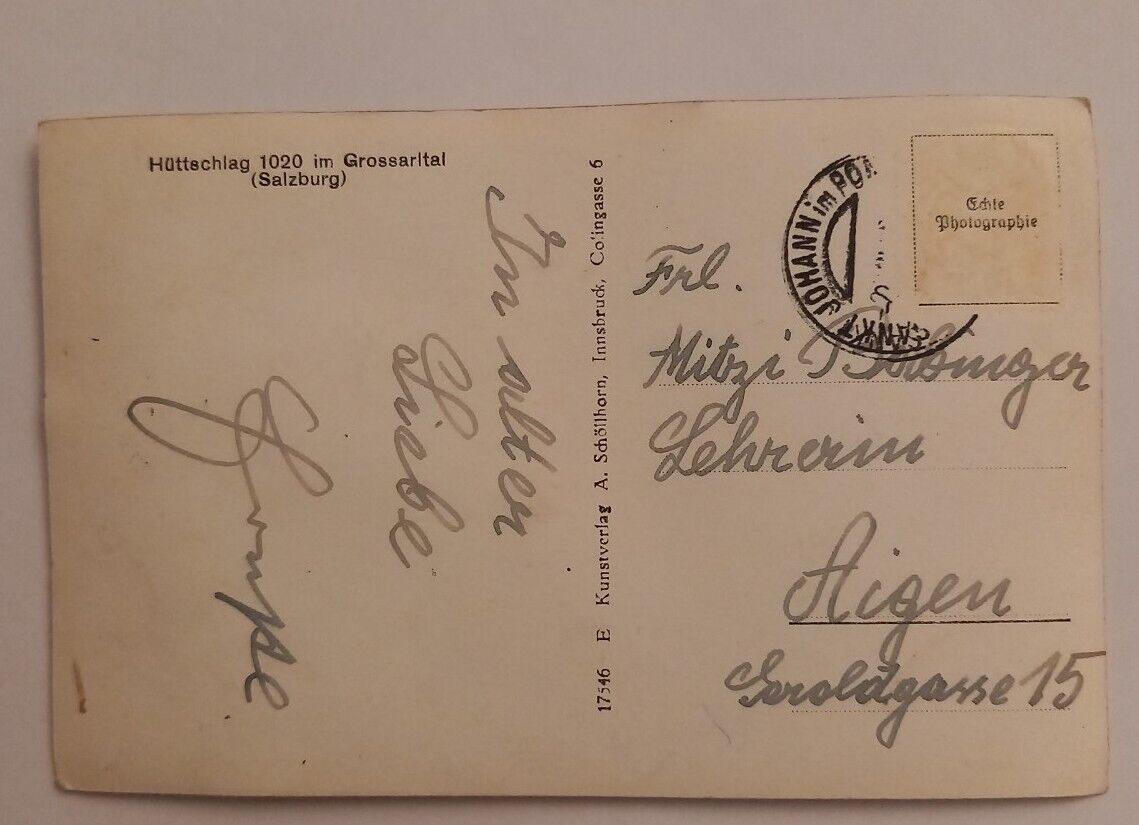 Hüttschlag 1020 im Grossarltal
(Salzburg)
In alter
Liebe
17546 E Kunstverlag A. Schöllhorn, Innsbruck, Colingasse 6
SANKT JOHANN im PON
Echte
Photographie
Frl.
Mitzi
Lehrerin
Aigen
Geroldgasse 15